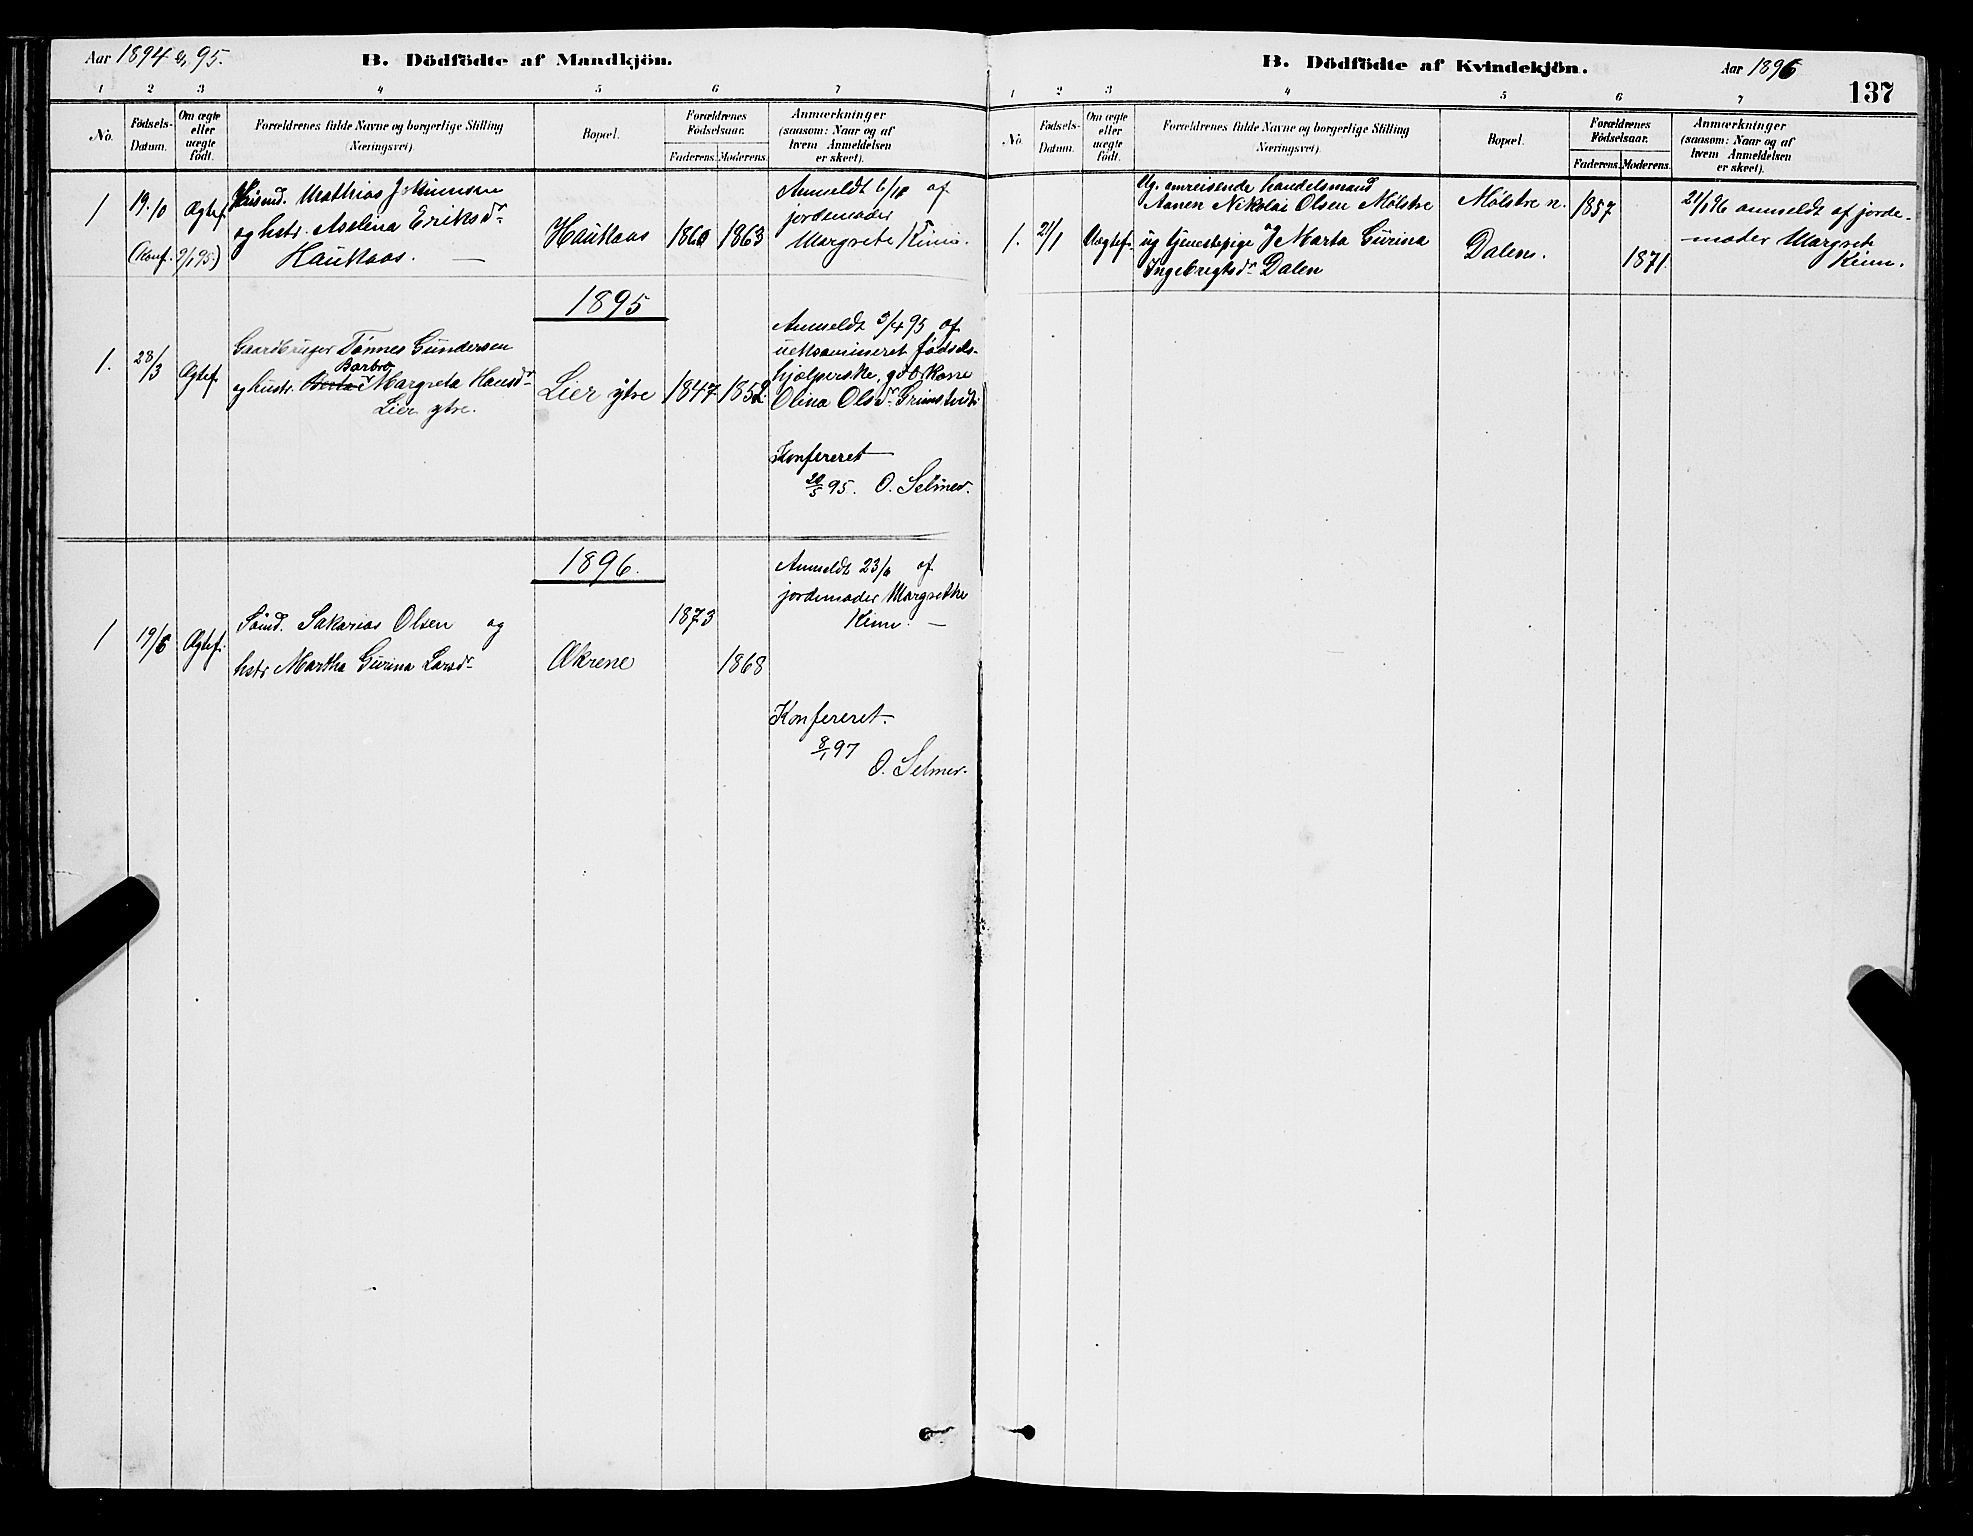 Aar 1894 & 95.
B. Dödfödte af Mandkjön.
1 2 3 4 5 6 7
No.
Födsels-
Datum.
Om ægte
eller
uægte
födt.
Forældrenes fulde Navne og borgerlige Stilling
(Næringsvei)
Bopæl.
Forældrenes
Födselsaar.
Faderens. Moderens.
Anmærkninger
(saasom: Naar og af
hvem Anmeldelsen
er skeet).
1 19/10 Ægtef.
(Konf. 9/1 95.)
Mathias
og hstr. Aselina Eriksdr
Haukaas.
Haukaas 1860 1863
Anmeldt af
jordemoder
Margrete Kinn.
1895
1. 28/3 Ægtef.
Gaardbruger Tönnes Gundersen
Barbro
og hustr. Berta Margreta Hansdr
Lier ytre.
Lier ytre 1847 1852.
Anmeldt 3/4 95 af
ueksamineret födsels-
hjælperske, gdbrkone
Olina Olsdr
Konfereret
20/5 95. O. Selmer.
1896.
1 19/6 Ægtef.
Sakarias Olsen og
hstr Martha Gurina Larsdr
Økrene
1873
1868
Anmeldt 23/6 af
jordemoder Margrethe
Kinn.
Konfereret.
8/1 97
O. Selmer.
B. Dödfödte af Kvindekjön.
Aar 1896
137
1 2 3 4 5 6 7
No.
Födsels-
Datum.
Om ægte
eller
uægte
födt.
Forældrenes fulde Navne og borgerlige Stilling
(Næringsvei)
Bopæl.
Forældrenes
Födselsaar.
Faderens. Moderens.
Anmærkninger
(saasom: Naar og af
hvem Anmeldelsen
er skeet).
1. 21/1 Uægtef.
Ug. omreisende handelsmand
Aanen Nikolai Olsen Mölstre
ug tjenestepige Marta Gurina
Ingebrigtsdr Dalen
Mölstre n.
Dalen.
1857
1871.
21/1 96 anmeldt af jorde-
moder Margrete
Kinn.